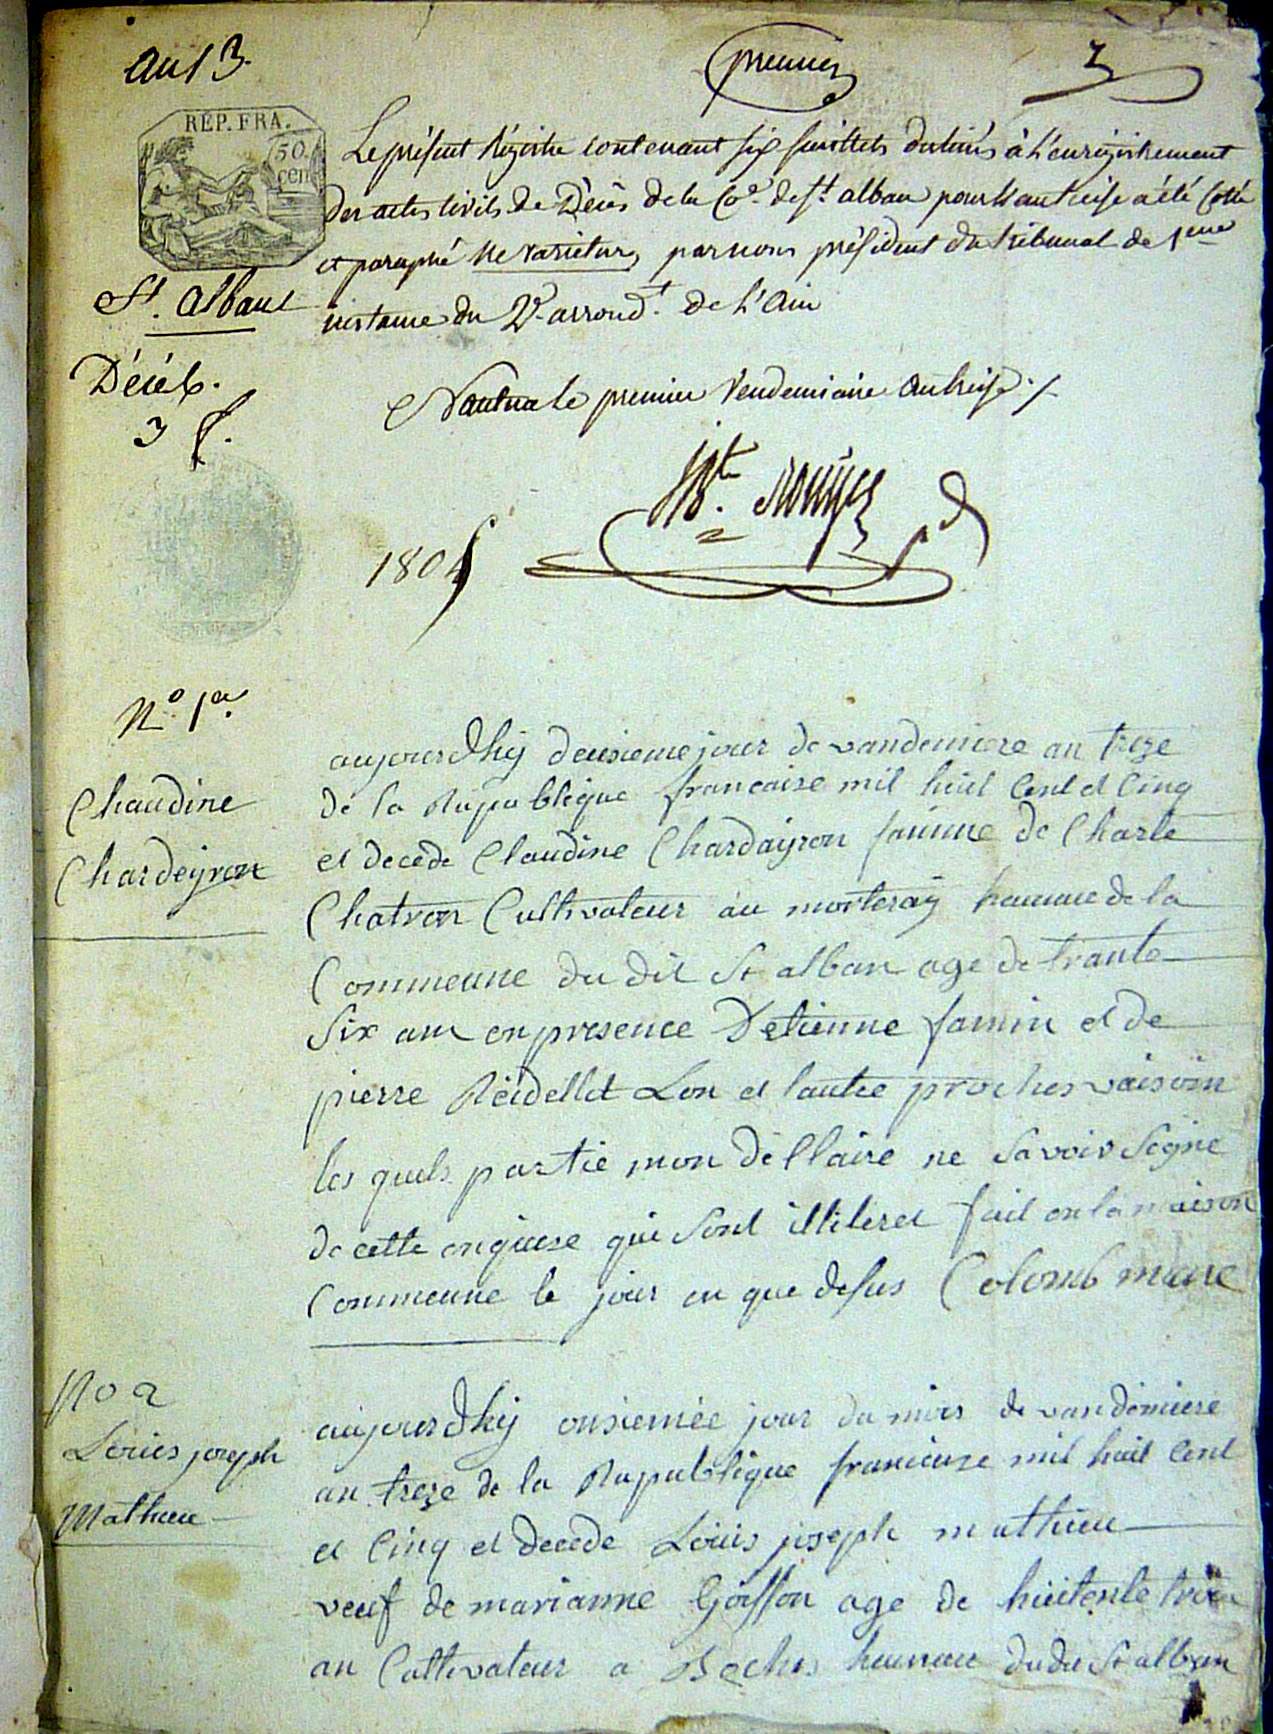 an 13.
premier
3
RÉP. FRA.
50
cen
Le présent Régistre contenant six feuillets destinés à l'enrégistrement
des actes civils de Décès de la Co.e de St alban pour l'an treise a été Cotté
et paraphé Ne varietur, par nous président du tribunal de 1ere
instance du 2e arrond.t de l'Ain
St. Alban
Décès.
3 f.
Nantua le premier Vendemiaire an treise ./.
1804
No. 1er
Chaudine
Chardeyron
aujourdhÿ deusieme jour de vandemiere an treze
de la Rupublique francaise mil huit Cent et Cinq
et decede Claudine Chardaÿron famme de Charle
Chatron Cultivateur au morteraÿ hamme de la
Commeune du dit St alban age de trante
six ans en presence Detienne famin et de
pierre Reidellet Lon et lautre proches vaisoin
les quels partie mon dellaire ne savoir signe
de cette enquise qui sont illiteret fait en la maison
Commeune le jour en que desus Colomb maire
No 2
Louis joseph
Mathieu
aujourdhÿ onsiemee jour du mois de vandemiere
an treze de la Rupublique francieuze mil huit Cent
et Cinq et decede Louis joseph mathieu
veuf de marianne Goiffon age de huitente troi
an Cultivateur a Boches hamau du du St alban